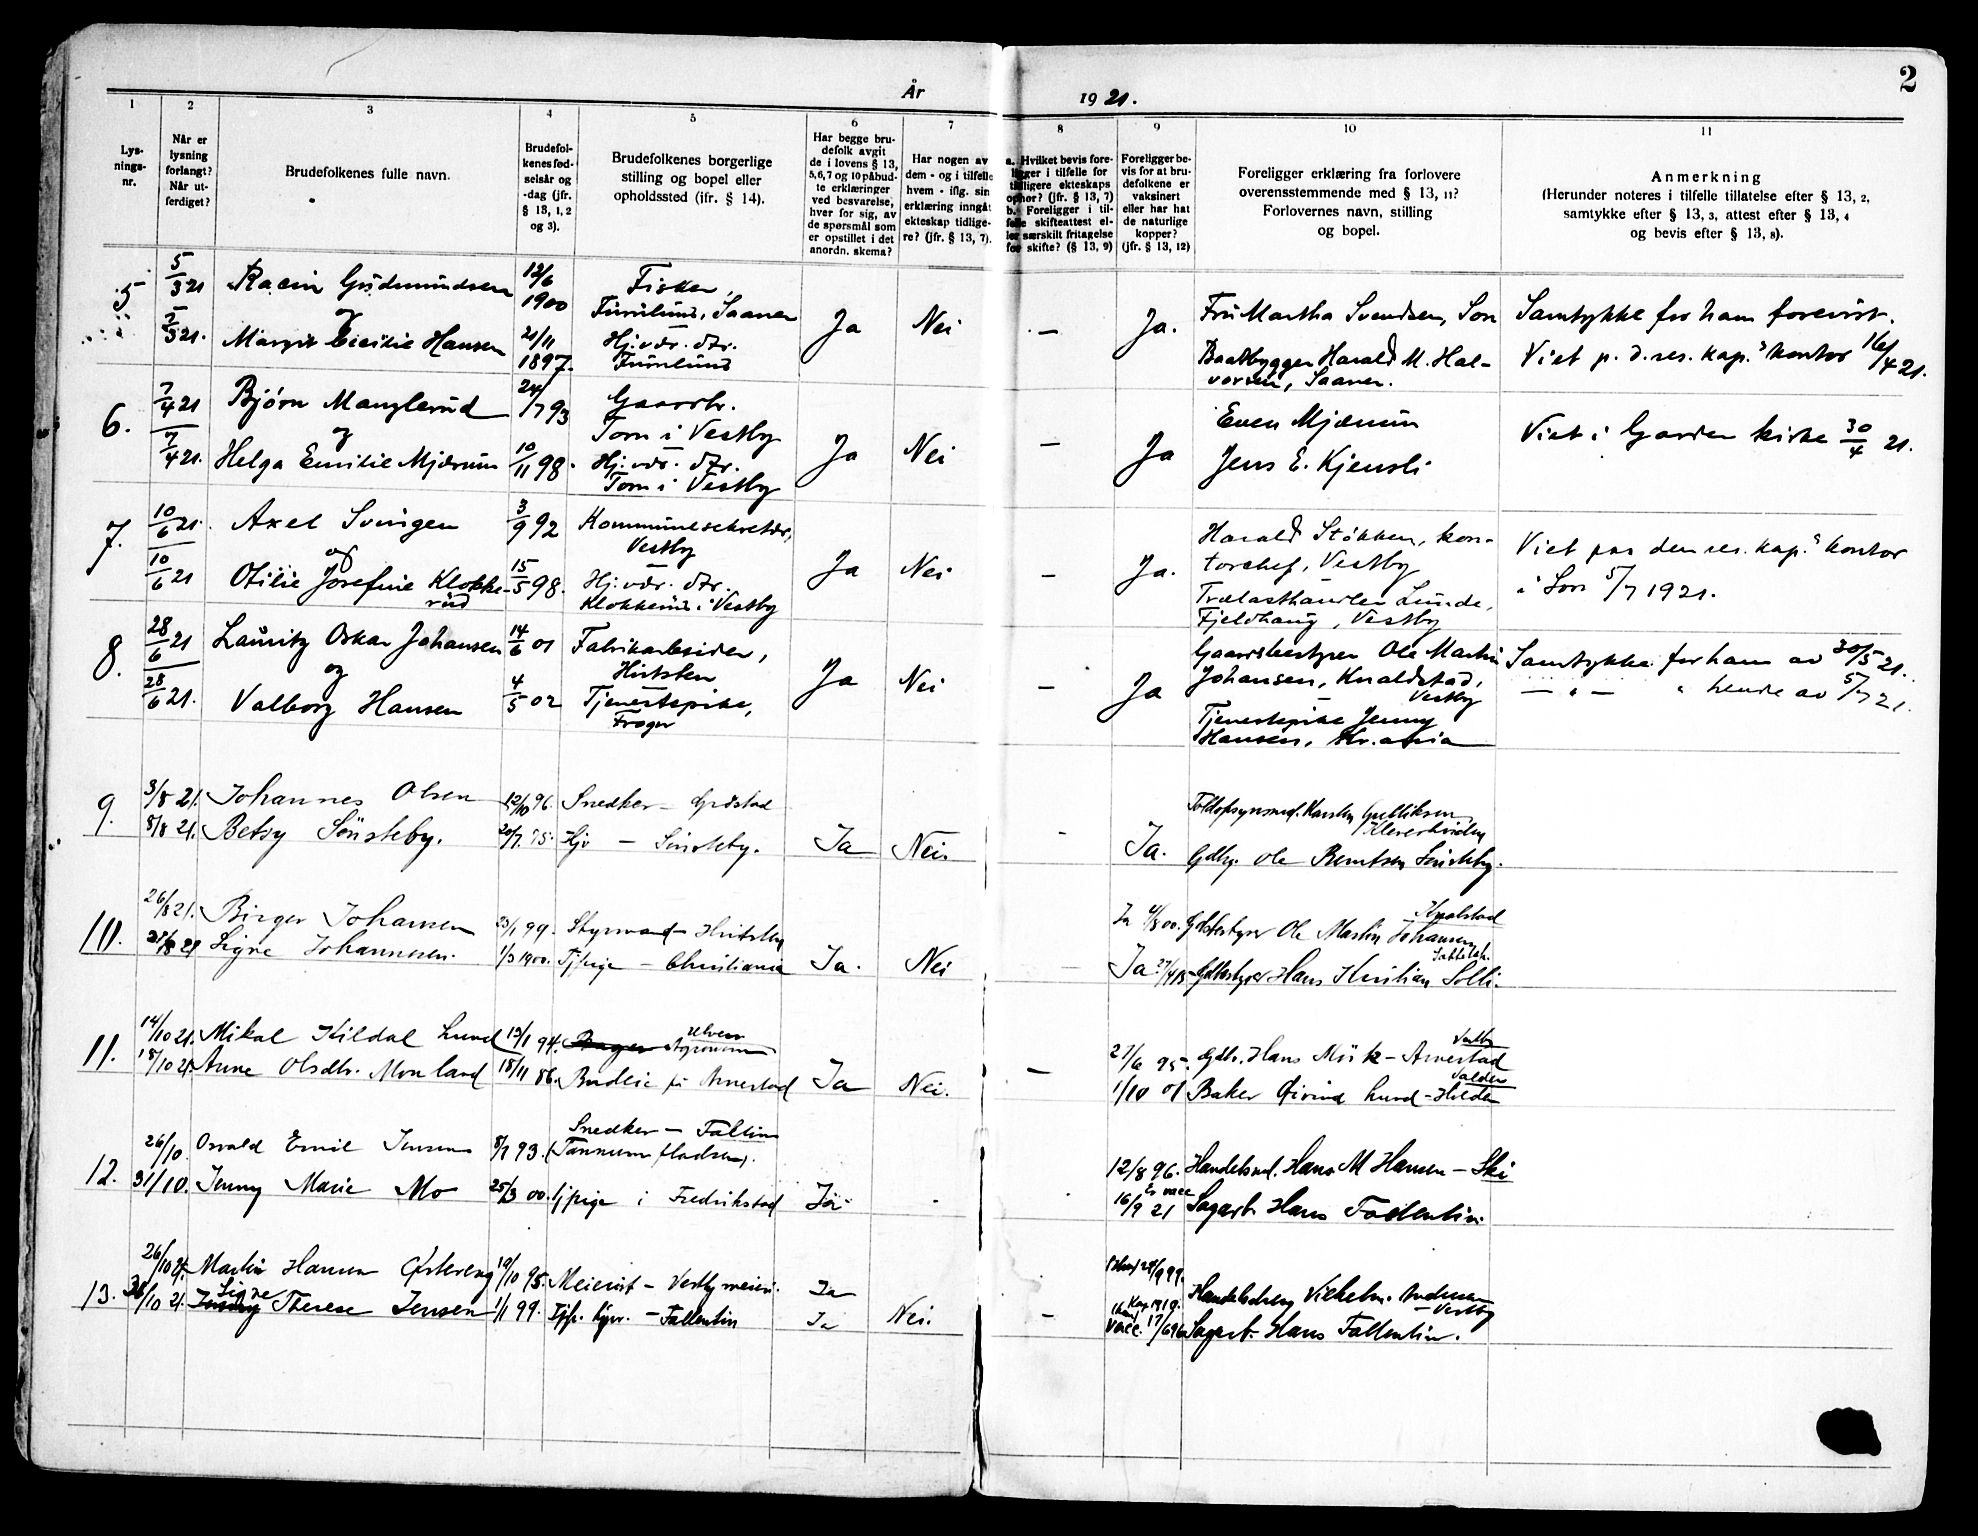 2
År 1921.
1 2 3 4 5 6 7 8 9 10 11
Lys-
nings-
nr.
Når er
lysning
forlangt?
Når ut-
ferdiget?
Brudefolkenes fulle navn.
Brudefol-
kenes fød-
selsår og
-dag (jfr.
§ 13, 1, 2
og 3).
Brudefolkenes borgerlige
stilling og bopel eller
opholdssted (jfr. § 14).
Har begge bru-
defolk avgit
de i lovens § 13,
5,6,7 og 10 påbud-
te erklæringer
ved besvarelse,
hver for sig, av
de spørsmål som
er opstillet i det
anordn. skema?
Har nogen av
dem - og i tilfelle
hvem - iflg. sin
erklæring inngåt
ekteskap tidlige-
re? (jfr. § 13, 7).
a. Hvilket bevis fore-
ligger i tilfelle for
tidligere ekteskaps
ophør? (jfr. § 13, 7)
b. Foreligger i til-
felle skifteattest el-
ler særskilt fritagelse
for skifte? (§ 13, 9)
Foreligger be-
vis for at bru-
defolkene er
vaksinert
eller har hat
de naturlige
kopper?
(jfr. § 13, 12)
Foreligger erklæring fra forlovere
overensstemmende med § 13, 11?
Forlovernes navn, stilling
og bopel.
Anmerkning
(Herunder noteres i tilfelle tillatelse efter § 13, 2,
samtykke efter § 13, 3, attest efter § 13, 4
og bevis efter § 13, 8).
5
5/3 21 Gudmundsen 12/6 1900 Fisker,
og Saaner
5/3 21. Margit Cecilie Hansen 21/11 1897. Hj.vær. dtr.
Ja Nei — Ja.
Fru Martha Svendsen, Son
Baatbygger Harald M. Hal-
vorsen, Saaner.
Samtykke for ham forevist.
Viet p. d. res. kap.s kontor 16/4 21.
6.
7/4 21 Bjørn Manglerud 24/7 93 Gaardbr.
og Torn i Vestby
7/4 21. Helga Emilie Mjærum 10/11 98. Hj. vær. dtr.
Torn i Vestby
Ja Nei — Ja
Even Mjærum
Jens E. Kjensli
Viet i Garder kirke 30/4 21.
7.
10/6 21. Axel Svingen 3/9 92 Kommunesekretær,
og Vestby
10/6 21 Otilie Josefine Klokke-
rud 15/5 98. Hj. vær. dtr.
Klokkerud i Vestby
Ja Nei — Ja.
Harald Støkken, kon-
torchef, Vestby
Trælasthandler Lunde,
Fjeldhaug, Vestby
Viet paa den res. kap.s kontor
i Son 5/7 1921.
8.
28/6 21 Lauritz Oskar Johansen 14/6 01 Fabrikarbeider,
og Hvitsten
28/6 21. Valborg Hansen 4/5 02 Tjenestepike,
Frogn
Ja Nei — Ja
Gaardsbestyrer Ole Martin
Johansen, Knaldstad,
Vestby
Tjenestepike Jenny
Hansen, Kr.ania
Samtykke for ham av 30/5 21.
— " — " hende av 5/7 21.
9.
3/8 21. Johannes Olsen 12/10 96. Snedker —
8/8 21. Betsy Sönsteby. 20/7. 75. Hjv — Sönsteby.
Ja Nei. - Ja.
Toldopsynsmd. Karsten Gulliksen
Gdbr. Ole Berntsen Sönsteby.
10.
26/8 21. Birger Johansen 23/1 99. Styrmand - Hvitsten
27/8 21 Signe Johannesen. 1/3 1900. Tjpige — Christiania
Ja. Nei —
Ja 4/8 00. Gdbestyrer Ole Martin Johansen
Knalstad
Ja 27/4 15 - Gdbestyrer Hans Kristian Solli.
11.
14/10 21. Mikal Kildal Lund 13/1 94. Agronom
18/10 21. Anne Olsdtr. Morland 18/11 86. Budeie på Arnestad
Ja Nei. —
27/6 95 - Gdbr. Hans Mörk - Arnestad
Vestby
1/10 01 Baker Öivind Lund - Hilden
12.
26/10. Osvald Emil Jensen 8/7 93. Snedker — Fallentin
31/10. Jenny Marie Mo 25/3 00. Tjpige i Fredrikstad
Ja - .
12/8 96. Handelsmd. Hans M Hansen — Ski
16/9 21 Sagarb. Hans Fallentin.
13.
26/10 21. Martin Hansen Østereng 19/10 95. Meierist — Vestby meieri. Ja
/10 21. Signe Therese Jensen 1/1 99. Tjp. — Fallentin Ja
Nei. —
Handelsbetj. Vilhelm Andersen
— Vestby
vacc. 17/6 96 Sagarb. Hans Fallentin.